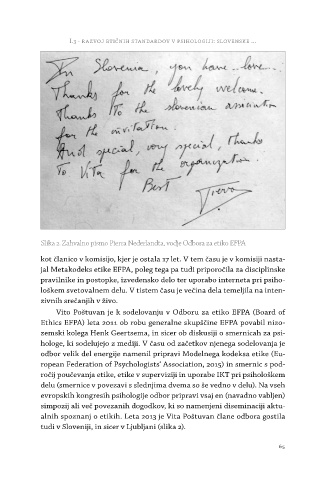 1.3 · RAZVOJ ETIČNIH STANDARDOV V PSIHOLOGIJI: SLOVENSKE ...
In Slovenia, you have love...
Thanks for the lovely welcome.
Thanks to the slovenian association
for the invitation.
And special, very special, thanks
to Vita for the organization.
Best
Slika 2. Zahvalno pismo Pierra Nederlandta, vodje Odbora za etiko EFPA
kot članico v komisijo, kjer je ostala 17 let. V tem času je v komisiji nasta-
jal Metakodeks etike EFPA, poleg tega pa tudi priporočila za disciplinske
pravilnike in postopke, izvedensko delo ter uporabo interneta pri psiho-
loškem svetovalnem delu. V tistem času je večina dela temeljila na inten-
zivnih srečanjih v živo.
Vito Poštuvan je k sodelovanju v Odboru za etiko EFPA (Board of
Ethics EFPA) leta 2011 ob robu generalne skupščine EFPA povabil nizo-
zemski kolega Henk Geertsema, in sicer ob diskusiji o smernicah za psi-
hologe, ki sodelujejo z mediji. V času od začetkov njenega sodelovanja je
odbor velik del energije namenil pripravi Modelnega kodeksa etike (Eu-
ropean Federation of Psychologists' Association, 2015) in smernic s pod-
ročij poučevanja etike, etike v superviziji in uporabe IKT pri psihološkem
delu (smernice v povezavi s slednjima dvema so še vedno v delu). Na vseh
evropskih kongresih psihologije odbor pripravi vsaj en (navadno vabljen)
simpozij ali več povezanih dogodkov, ki so namenjeni diseminaciji aktu-
alnih spoznanj o etikih. Leta 2013 je Vita Poštuvan člane odbora gostila
tudi v Sloveniji, in sicer v Ljubljani (slika 2).
65